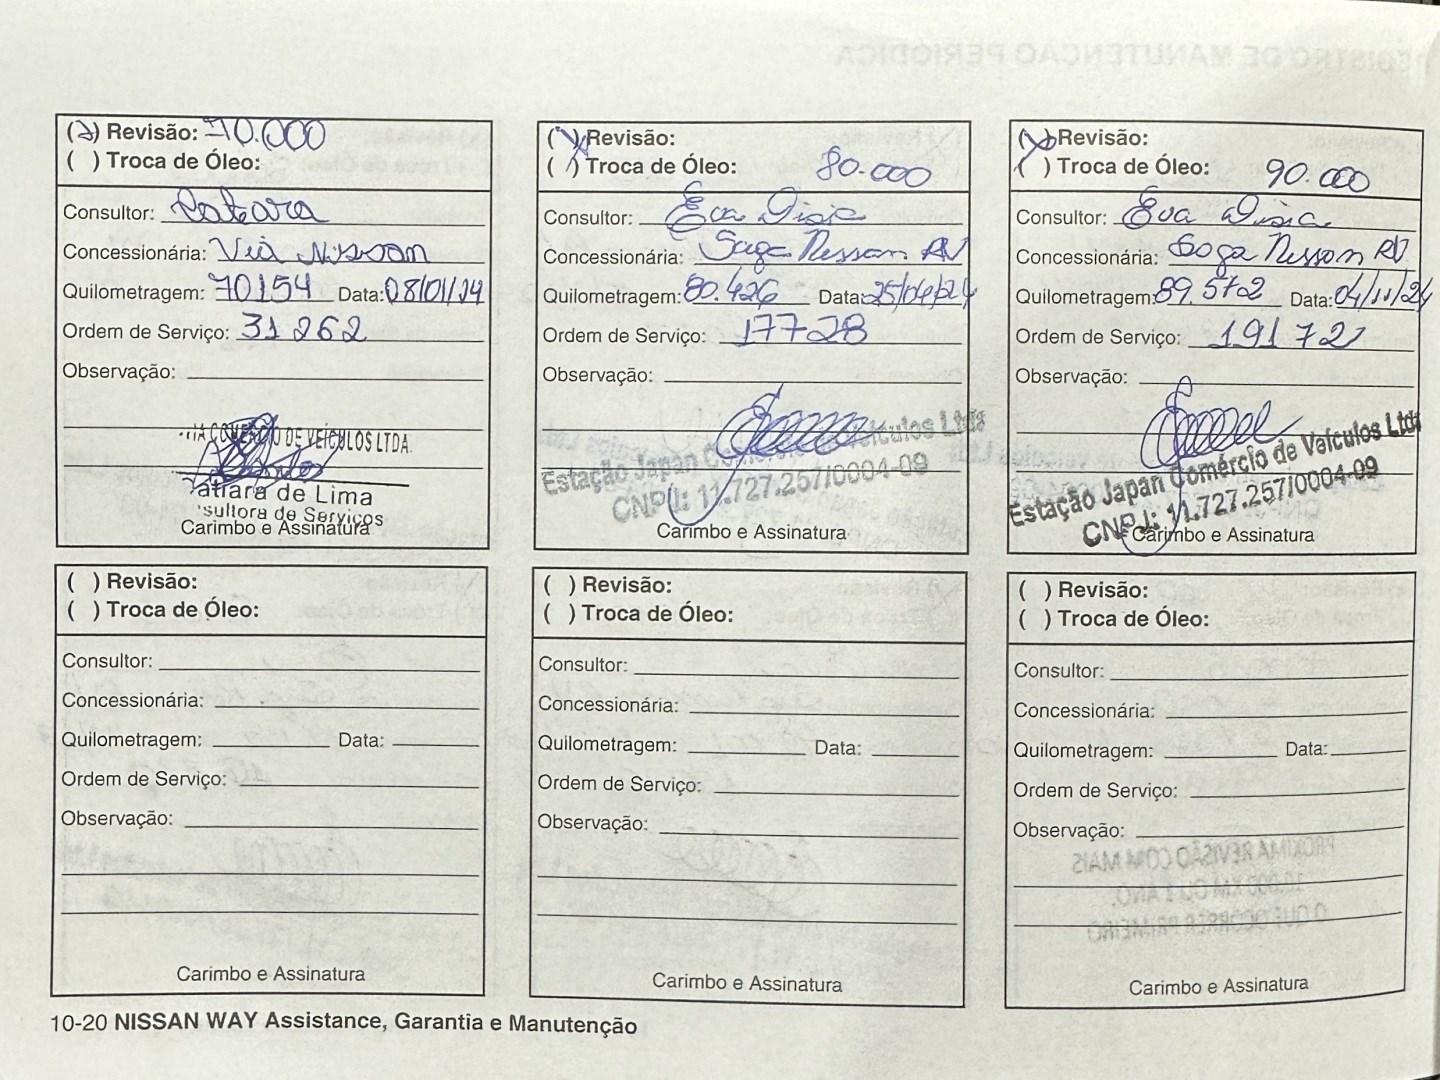 (x) Revisão: 70.000
( ) Troca de Óleo:
Consultor:
Concessionária: Via Nissan
Quilometragem: 70154 Data: 08/01/24
Ordem de Serviço: 31262
Observação:
COMÉRCIO DE VEÍCULOS LTDA.
de Lima
de Serviços
Carimbo e Assinatura
(x) Revisão:
( ) Troca de Óleo: 80.000
Consultor: Eva
Concessionária: Saga Nissan RV
Quilometragem: 80.426 Data: 25/04/24
Ordem de Serviço: 17728
Observação:
Estação Japan Comércio de Veículos Ltda
CNPJ: 11.727.257/0004-09
Carimbo e Assinatura
(x) Revisão:
( ) Troca de Óleo: 90.000
Consultor: Eva
Concessionária: Saga Nissan RV
Quilometragem: 89.572 Data: 04/11/24
Ordem de Serviço: 19172
Observação:
Estação Japan Comércio de Veículos Ltda
CNPJ: 11.727.257/0004-09
Carimbo e Assinatura
( ) Revisão:
( ) Troca de Óleo:
Consultor:
Concessionária:
Quilometragem: Data:
Ordem de Serviço:
Observação:
Carimbo e Assinatura
( ) Revisão:
( ) Troca de Óleo:
Consultor:
Concessionária:
Quilometragem: Data:
Ordem de Serviço:
Observação:
Carimbo e Assinatura
( ) Revisão:
( ) Troca de Óleo:
Consultor:
Concessionária:
Quilometragem: Data:
Ordem de Serviço:
Observação:
Carimbo e Assinatura
10-20 NISSAN WAY Assistance, Garantia e Manutenção